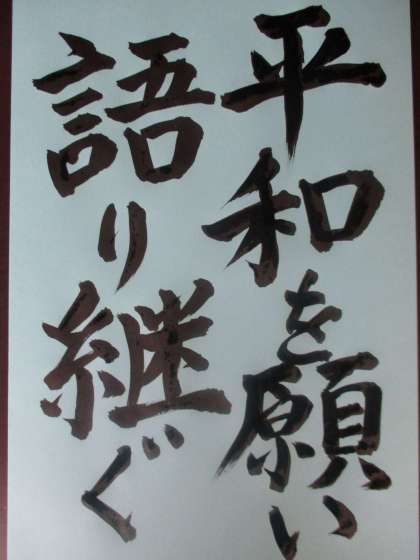 平和を願い
語り継ぐ